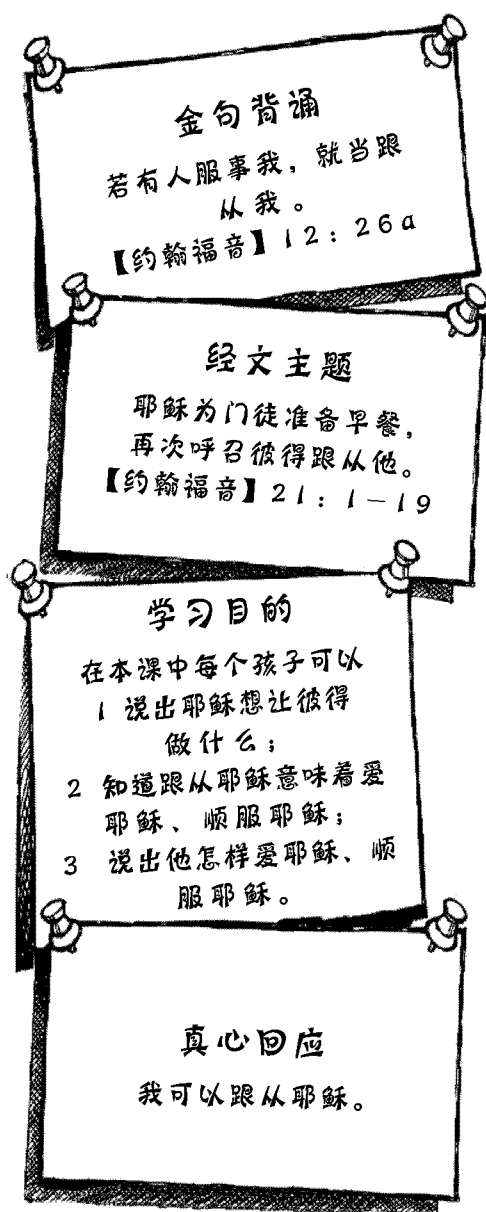 金句背诵
若有人服事我，就当跟
从我。
【约翰福音】12：26a
经文主题
耶稣为门徒准备早餐，
再次呼召彼得跟从他。
【约翰福音】21：1—19
学习目的
在本课中每个孩子可以
1 说出耶稣想让彼得
做什么；
2 知道跟从耶稣意味着爱
耶稣、顺服耶稣；
3 说出他怎样爱耶稣、顺
服耶稣。
真心回应
我可以跟从耶稣。